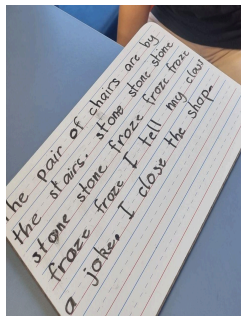 the pair of chairs are by
the stairs. stone stone stone
stone stone froze froze froze
froze froze I tell my class
a joke. I close the shop.